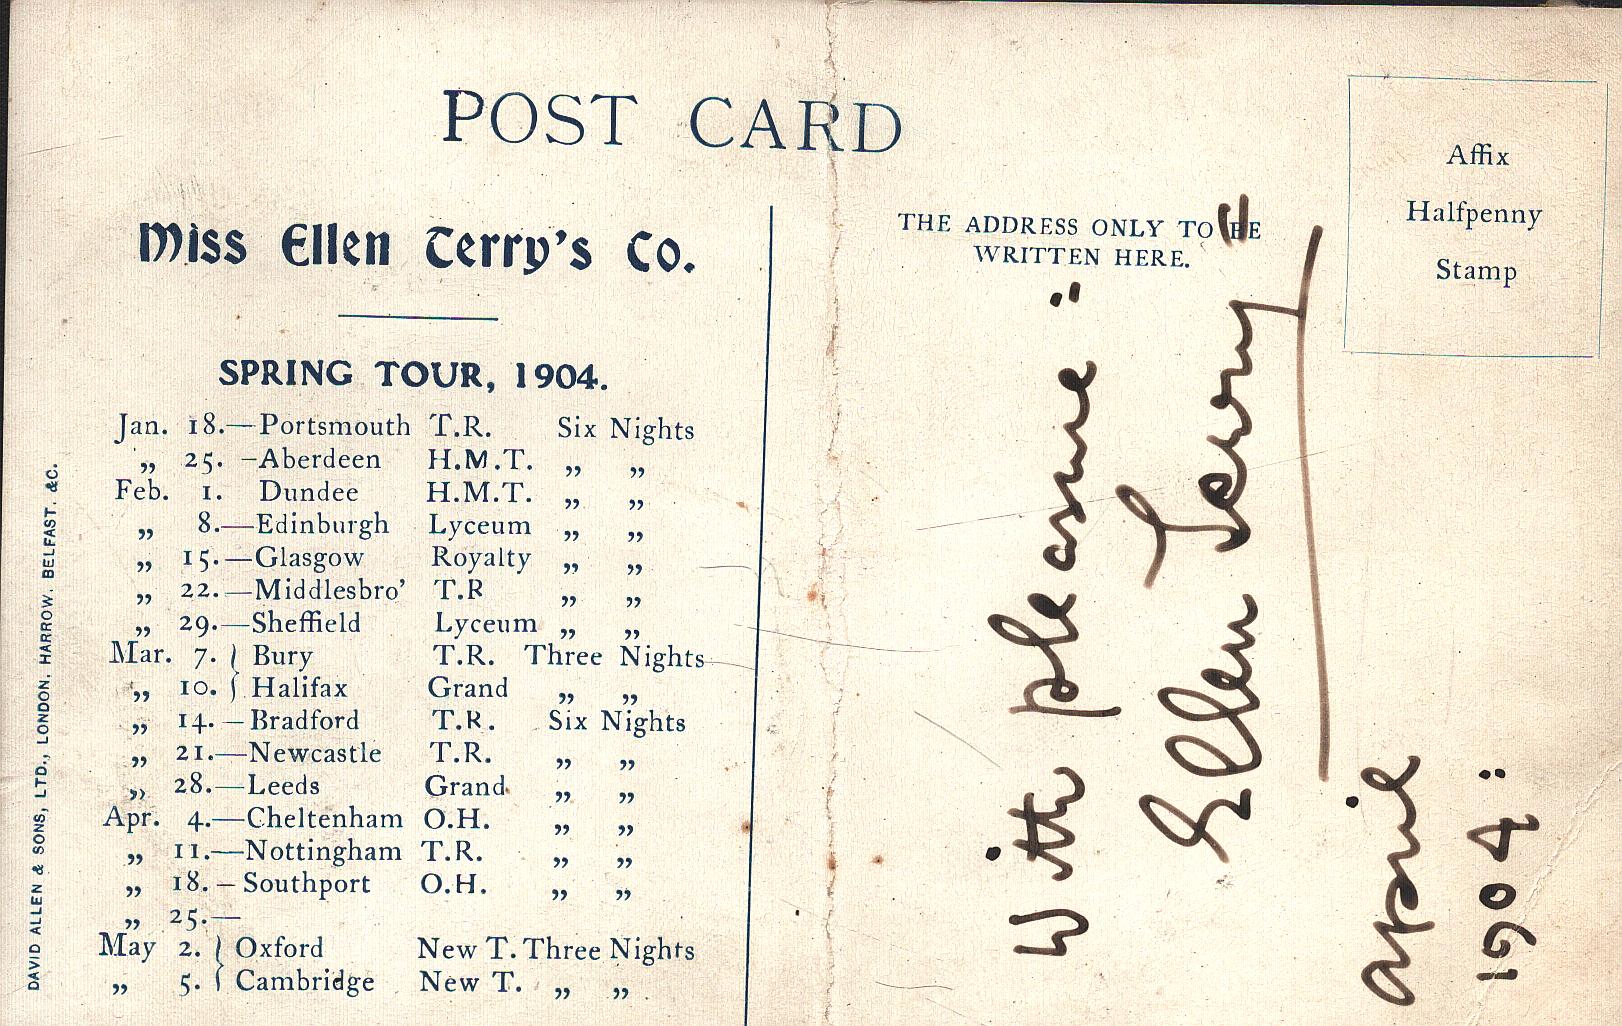 POST CARD
Miss Ellen Terry's Co.
SPRING TOUR, 1904.
Jan. 18.—Portsmouth T.R. Six Nights
„ 25. –Aberdeen H.M.T. „ „
Feb. 1. Dundee H.M.T. „ „
„ 8.—Edinburgh Lyceum „ „
„ 15.—Glasgow Royalty „ „
„ 22.—Middlesbro' T.R „ „
„ 29.—Sheffield Lyceum „ „
Mar. 7. } Bury T.R. Three Nights
„ 10. } Halifax Grand „ „
„ 14. – Bradford T.R. Six Nights
„ 21.—Newcastle T.R. „ „
„ 28.—Leeds Grand „ „
Apr. 4.—Cheltenham O.H. „ „
„ 11.—Nottingham T.R. „ „
„ 18. – Southport O.H. „ „
„ 25.—
May 2. } Oxford New T. Three Nights
„ 5. } Cambridge New T. „ „
DAVID ALLEN & SONS, LTD., LONDON, HARROW, BELFAST, &C.
THE ADDRESS ONLY TO BE
WRITTEN HERE.
Affix
Halfpenny
Stamp
With pleasure
Ellen Terry
april
1904: